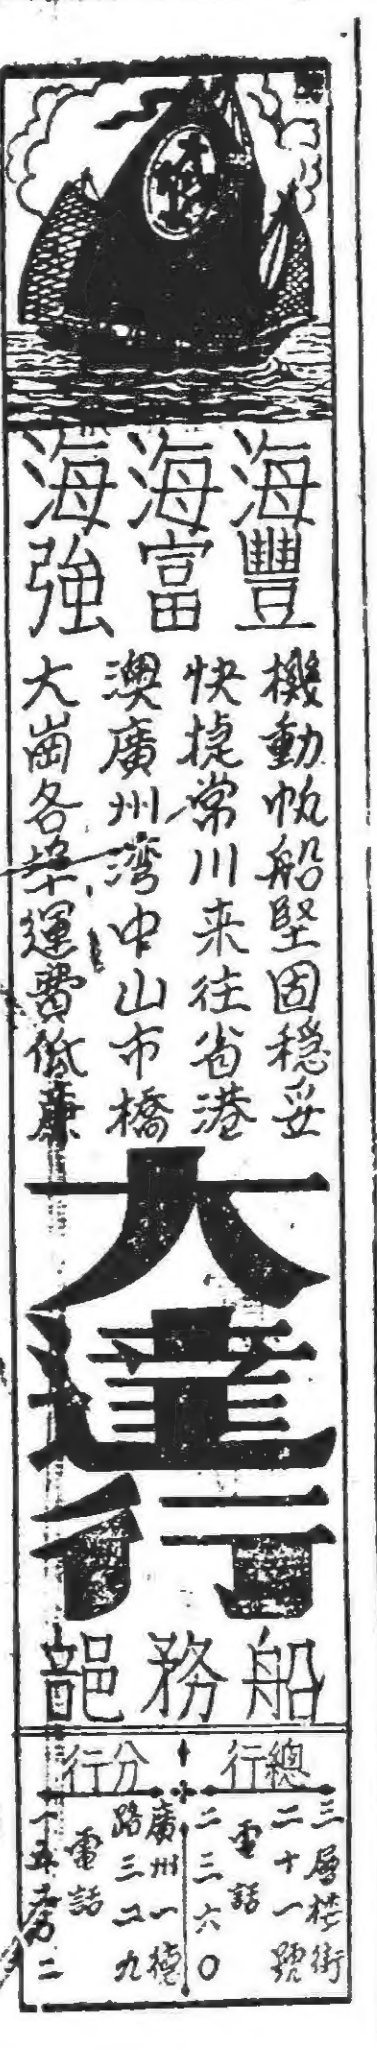 海豐
海富
海強
機動帆船堅固穩妥
快捷常川来往省港
澳廣州湾中山市橋
大崗各埠運費低廉
大達行
船務部
總行
三層楼街
二十一號
電話
二三六〇
分行
廣州一德
路三二九
電話